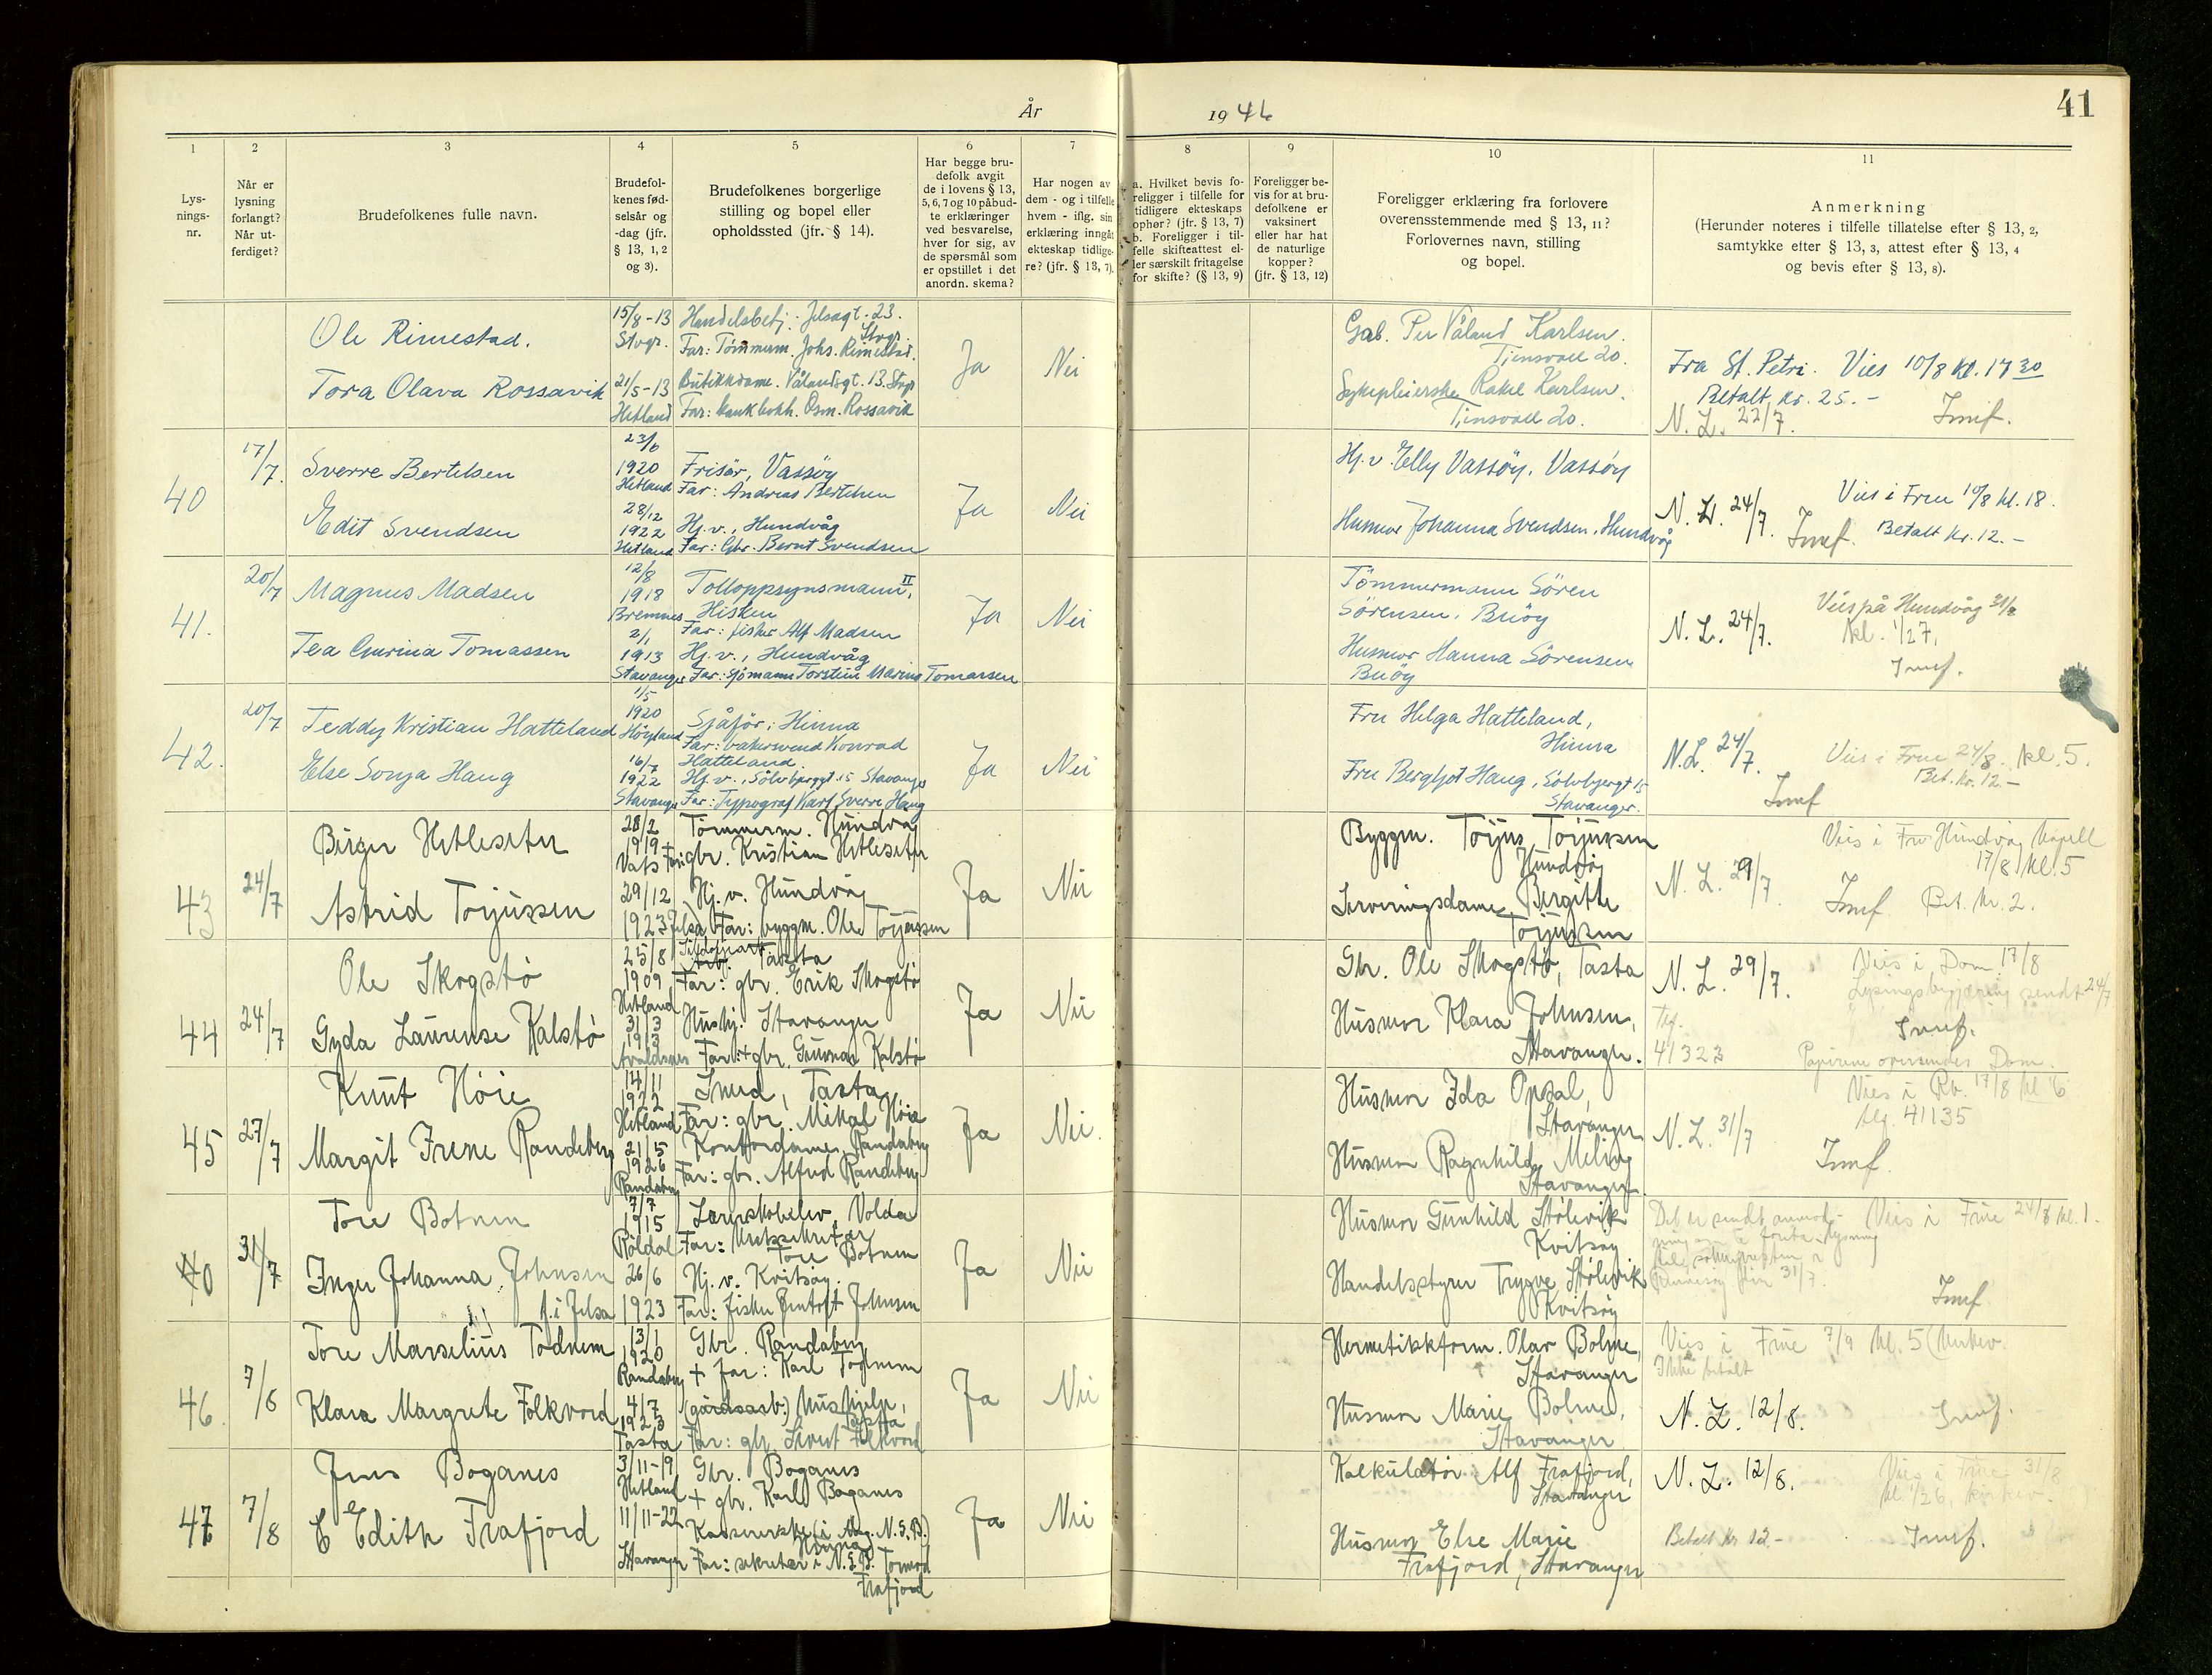 År
1946
41
1
Lys-
nings-
nr.
2
Når er
lysning
forlangt?
Når ut-
ferdiget?
3
Brudefolkenes fulle navn.
4
Brudefol-
kenes fød-
selsår og
-dag (jfr.
§ 13, 1, 2
og 3).
5
Brudefolkenes borgerlige
stilling og bopel eller
opholdssted (jfr. § 14).
6
Har begge bru-
defolk avgit
de i lovens § 13,
5, 6, 7 og 10 påbud-
te erklæringer
ved besvarelse,
hver for sig, av
de spørsmål som
er opstillet i det
anordn. skema?
7
Har nogen av
dem - og i tilfelle
hvem - iflg. sin
erklæring inngåt
ekteskap tidlige-
re? (jfr. § 13, 7).
8
a. Hvilket bevis fo-
religger i tilfelle for
tidligere ekteskaps
ophør? (jfr. § 13, 7)
b. Foreligger i til-
felle skifteattest el-
ler særskilt fritagelse
for skifte? (§ 13, 9)
9
Foreligger be-
vis for at bru-
defolkene er
vaksinert
eller har hat
de naturlige
kopper?
(jfr. § 13, 12)
10
Foreligger erklæring fra forlovere
overensstemmende med § 13, 11?
Forlovernes navn, stilling
og bopel.
11
Anmerkning
(Herunder noteres i tilfelle tillatelse efter § 13, 2,
samtykke efter § 13, 3, attest efter § 13, 4
og bevis efter § 13, 8).
Ole Rimestad.
15/8-13
Stvgr.
Handelsbetj. Jelsagt. 23.
Stvgr.
Far: Tømmerm. Johs. Rimestad.
Tora Olava Rossavik
21/5-13
Hetland
Butikkdame. Vålandsgt. 13. Stvgr
Far: bankbokh. Osm. Rossavik
Ja
Nei
Grab. Per Våland Karlsen.
Tjensvoll 20.
Sykepleierske Rakel Karlsen.
Tjensvoll 20.
Fra St. Petri. Vies 10/8 kl. 17 30
Betalt kr. 25.-
N. L. 22/7.
40
17/7.
Sverre Bertelsen
23/6
1920
Hetland
Frisør, Vassøy
Far: Andreas Bertelsen
Edit Svendsen
28/12
1922
Hetland
Hj. v., Hundvåg
Far: Gbr. Bernt Svendsen
Ja
Nei
Hj. v. Elly Vassøy, Vassøy
Husmor Johanna Svendsen, Hundvåg
N. L. 24/7.
Vies i Frue 10/8 kl. 18.
Betalt kr. 12.-
41.
20/7
Magnus Madsen
12/8
1918
Bremnes
Tolloppsynsmann II,
Hisken
Far: fisker Alf Madsen
Tea Gurina Tomassen
2/1
1913
Stavanger
Hj. v., Hundvåg
Far: sjømann Torstein Marius Tomassen
Ja
Nei
Tömmermann Sören
Sörensen, Buöy
Husmor Hanna Sörensen
Buöy
N. L. 24/7.
Vies på Hundvåg 31/8
kl. 1/2 7,
42.
20/7
Teddy Kristian Hatteland
1/5
1920
Höyland
Sjåfør, Hinna
Far: bakersvend Konrad
Hatteland.
Else Sonja Haug
16/7
1922
Stavanger
Hj. v., Sölvbergt 15 Stavanger
Far: Typograf Karl Sverre Haug
Ja
Nei
Fru Helga Hatteland,
Hinna
Fru Bergljot Haug, Sölvbergt 15
Stavanger.
N. L. 24/7.
Vies i Frue 24/8. kl. 5.
Bet. kr. 12.-
43
24/7
Birger Hetleseter
28/2
1919
Vats
Tömmerm. Hundvåg
Far: gbr. Kristian Hetleseter
Astrid Torjussen
29/12
1923 Jelsa
Hj. v. Hundvåg
Far: byggm. Ole Torjussen
Ja
Nei
Byggm. Torjus Torjussen
Hundvåg
Serveringsdame Birgitte
Torjussen
N. L. 29/7.
Vies i Hundvåg kapell
17/8 kl. 5
Bet. kr. 2.
44
24/7
Ole Skogstø
25/8
1909
Hetland
Tasta
Far: gbr. Erik Skogstø
Gyda Laurense Kalstø
31/3
1913
Avaldsnes
Hushj. Stavanger
Far: + gbr. Gunnar Kalstø
Ja
Nei
Gbr. Ole Skogstø, Tasta
Husmor Klara Johnsen,
Stavanger.
N. L. 29/7.
Vies i Dom. 17/8
Lysingsbegjæring sendt 24/7
Tlf.
41323
Papirene oversendes Dom.
45
27/7
Knut Höie
14/11
1922
Hetland
Smed, Tasta
Far: gbr. Mikal Höie
Margit Irene Randeberg
21/5
1926
Randaberg
Kontordame, Randaberg
Far: gbr. Alfred Randeberg
Ja
Nei.
Husmor Ida Opsal,
Stavanger
Husmor Ragnhild Meling
Stavanger.
N. L. 31/7
Vies i Rb. 17/8 kl. 6
tlf. 41135
31/7
Tore Botnen
7/7
1915
Röldal
Lærerskoleelev, Volda
Far:
Tore Botnen
Inger Johanna Johnsen
f. i Jelsa
26/6
1923
Hj. v. Kvitsøy.
Far: fisker Johnsen
Ja
Nei
Husmor Gunhild Stølevik
Kvitsøy
Handelsstyrer Trygve Stølevik
Kvitsøy
Vies i Frue 24/8 kl. 1.
31/7.
46.
7/8
Tore Marselius Todnem
13/1
1920
Randaberg
Gbr. Randaberg
+ far: Karl Todnem
Klara Margrete Folkvord
4/7
1923
Tasta
(gårdsarb.) Hushjelp,
Tasta
Far: gbr. Folkvord
Ja
Nei
Hermetikkform. Olav Bolme,
Stavanger
Husmor Marie Bolme,
Stavanger
Vies i Frue 7/9 kl. 5
Ikke betalt
N. L. 12/8.
47
7/8
Jens Boganes
3/11-19
Hetland
Gbr. Boganes
+ gbr. Karl Boganes
Edith Frafjord
11/11-22
Stavanger
Kassererske i N. S. B.
Hinna
Far: sekretær i N. S. B. Tormod
Frafjord
Ja
Nei
Kalkulatør Alf Frafjord,
Stavanger
Husmor Else Marie
Frafjord, Stavanger
N. L. 12/8.
Vies i Frue 31/8
kl. 1/2 6,
Betalt kr 12.-